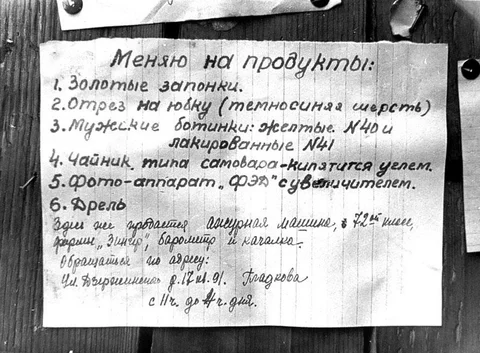 Меняю на продукты:
1. Золотые запонки.
2. Отрез на юбку (темносиняя шерсть)
3. Мужские ботинки: желтые N40 и
лакированные N41
4. Чайник типа самовара - кипятится углем.
5. Фото-аппарат „ФЭД" с увеличителем.
6. Дрель
Здесь же продается ажурная машина,
фирмы „Зингер", барометр и качалка.
Обращаться по адресу:
Ул. Дзержинского д. 17 кв. 91. Гладкова
с 11ч. до 4ч. дня.